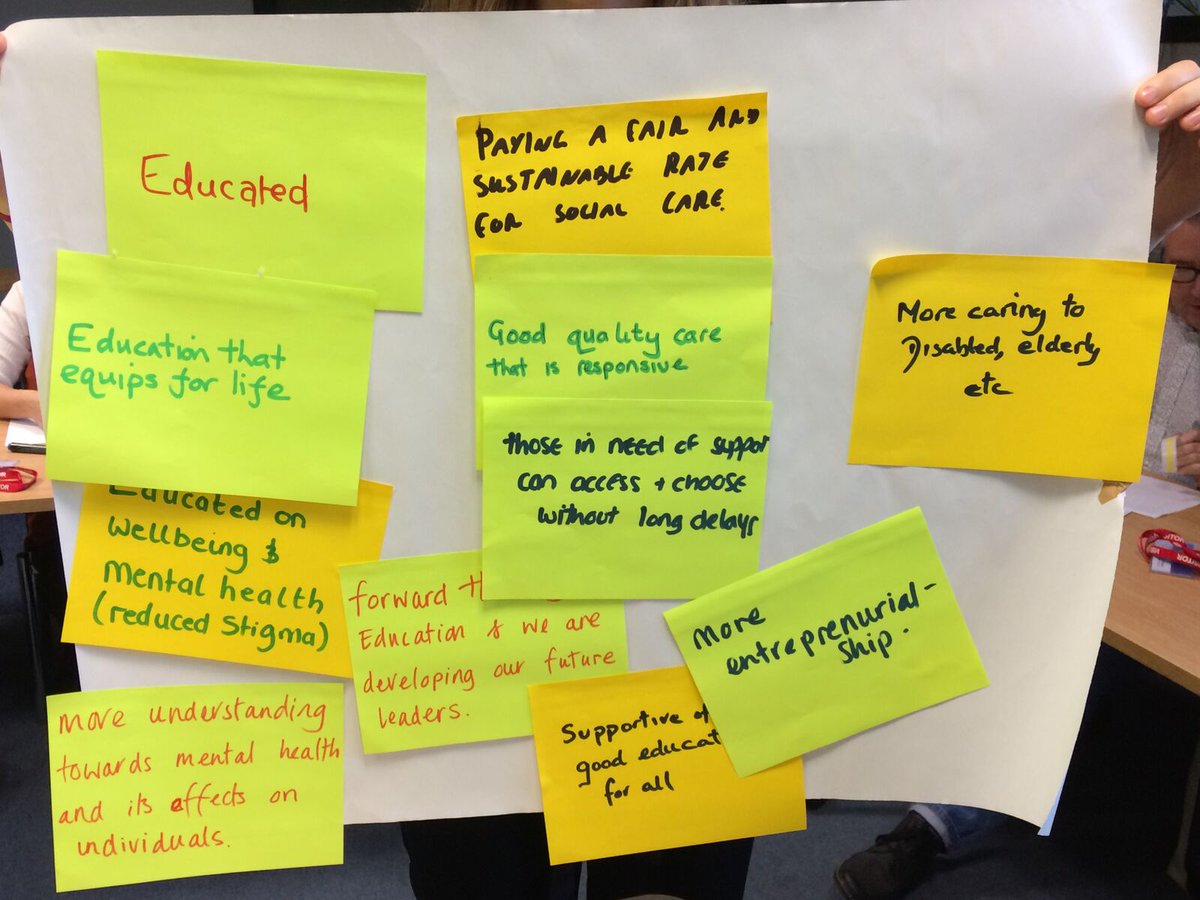 Educated
Education that
equips for life
Educated on
wellbeing &
mental health
(reduced stigma)
more understanding
towards mental health
and its effects on
individuals.
PAYING A FAIR AND
SUSTAINABLE RATE
FOR SOCIAL CARE.
Good quality care
that is responsive
those in need of suppor
can access + choose
without long delays
forward th
Education & we are
developing our future
leaders.
Supportive of
good educat
for all
More
entreprenurial-
ship.
More caring to
Disabled, elderly
etc
VISITOR